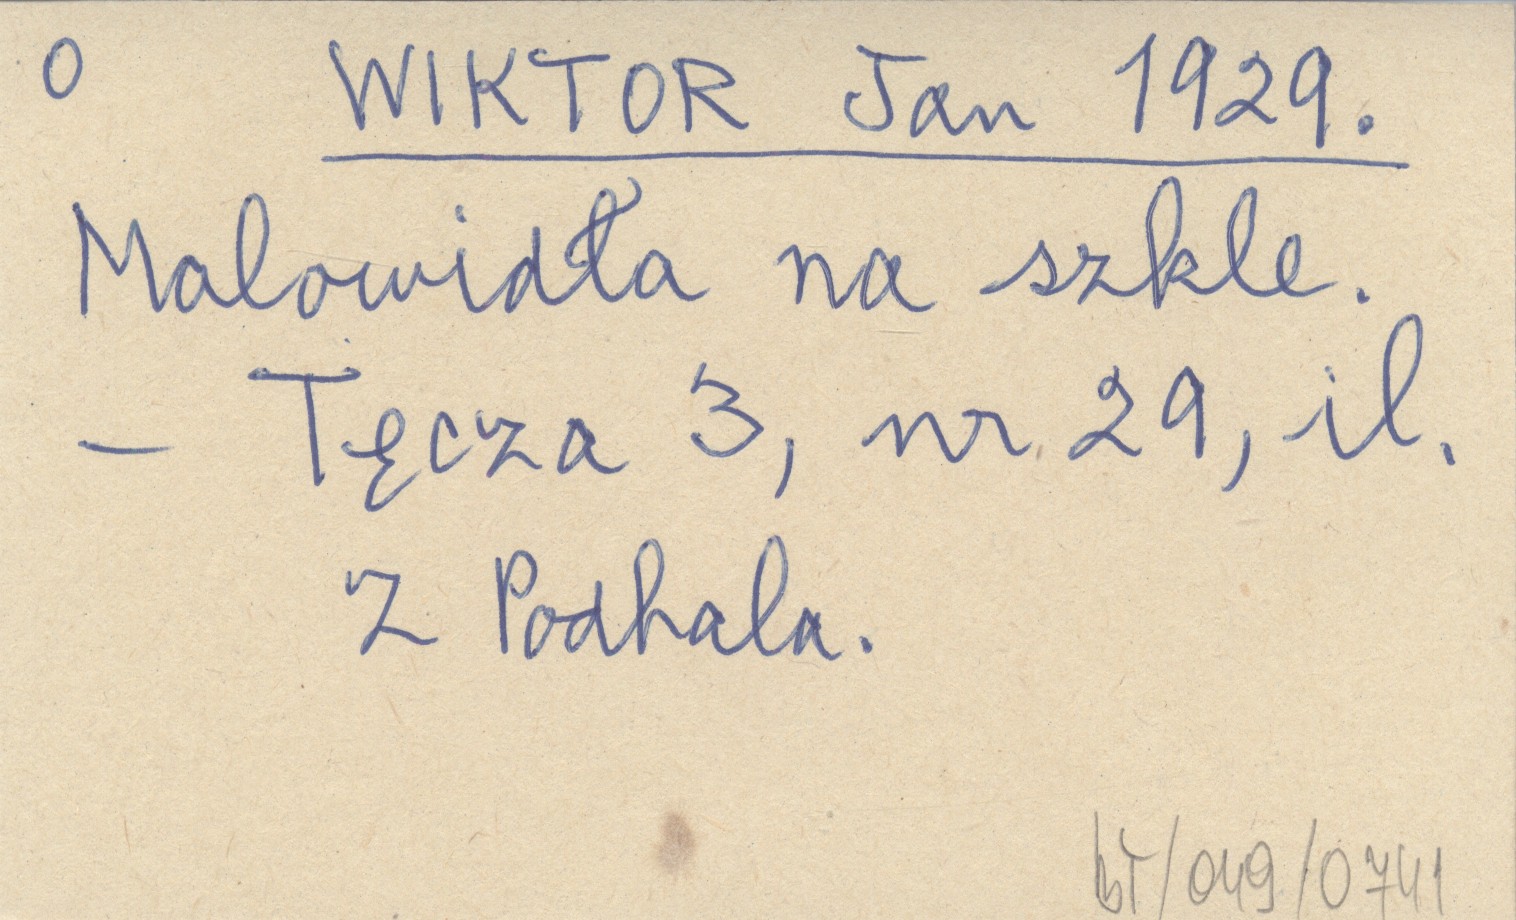 0 WIKTOR Jan 1929.
Malowidła na szkle.
— Tęcza 3, nr 29, il.
Z Podhala.
bT/049/0741